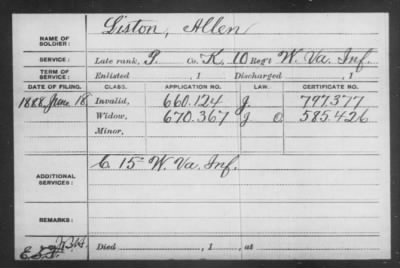 NAME OF SOLDIER: Liston, Allen
SERVICE: Late rank, P. Co. K, 10 Reg't W. Va. Inf.
TERM OF SERVICE: Enlisted , 1 Discharged , 1
DATE OF FILING. CLASS. APPLICATION NO. LAW. CERTIFICATE NO.
1888 June 18, Invalid, 660.124 g. 797.377
Widow, 670.367 g O 585.426
Minor,
ADDITIONAL SERVICES: C 15 W. Va. Inf.
REMARKS:
Died , 1 , at